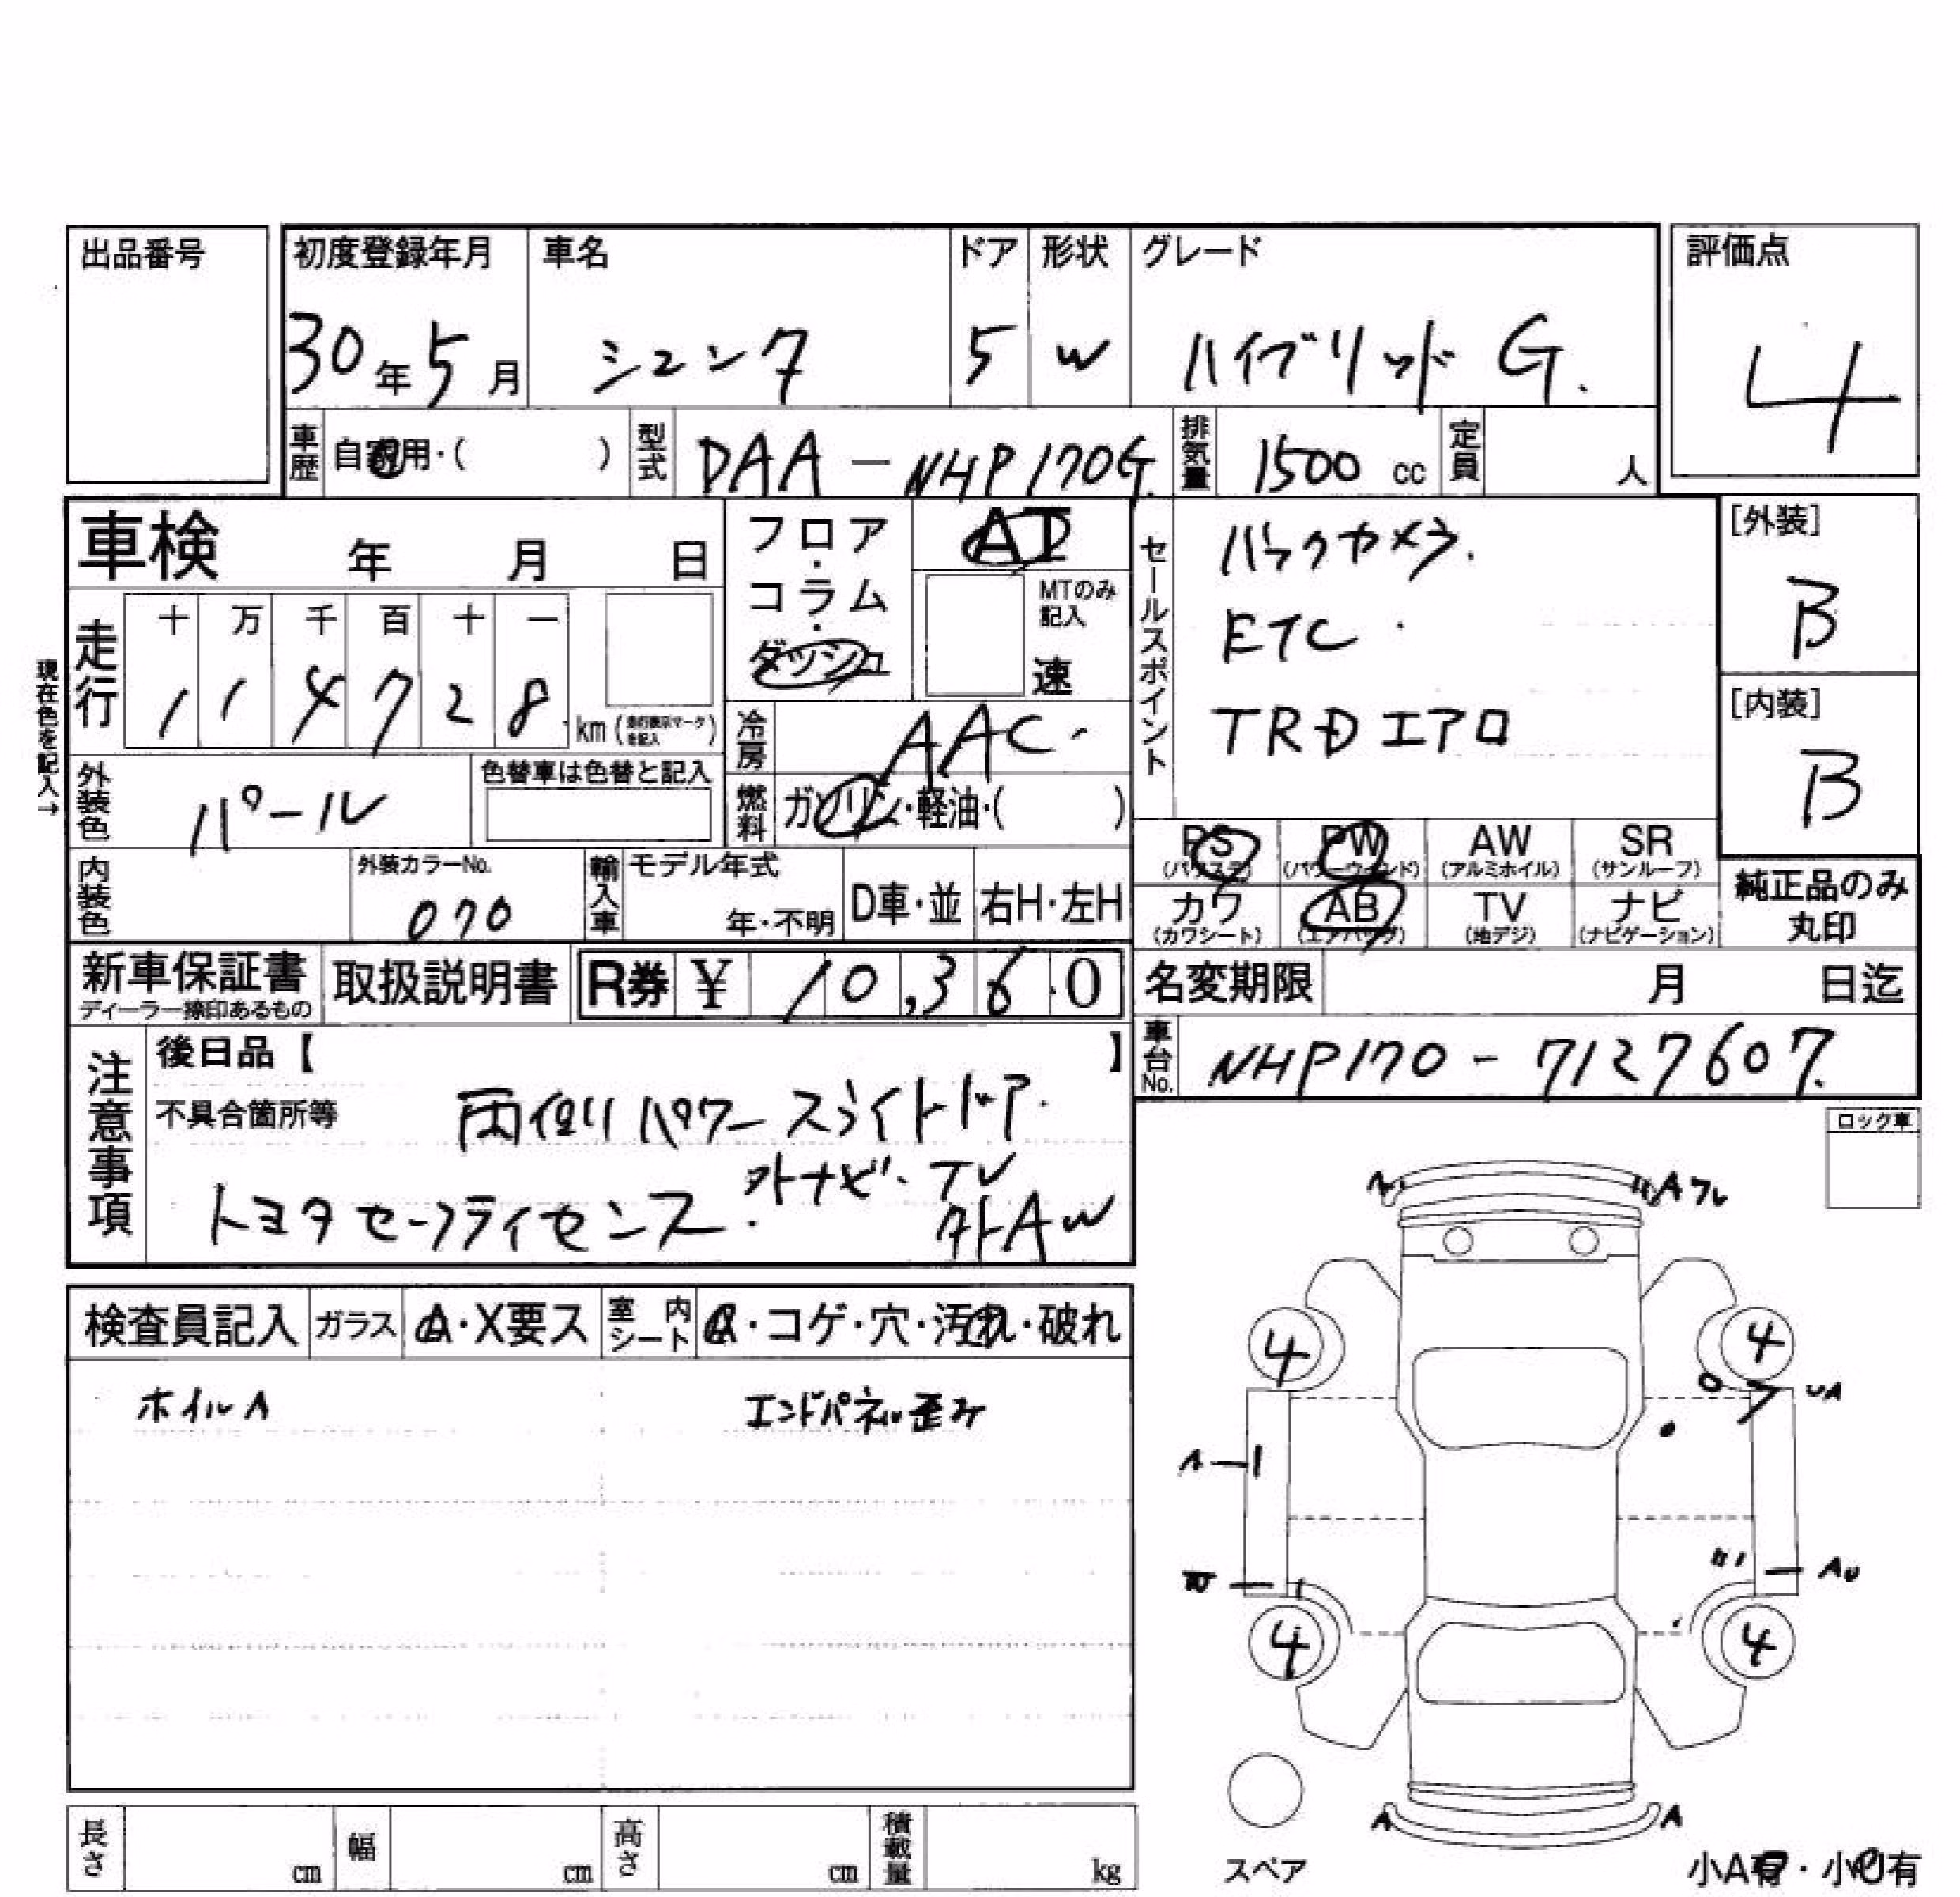 出品番号
初度登録年月 車名 ドア 形状 グレード 評価点
30年5月 シエンタ 5 W ハイブリッド G. 4
車歴 自家用・( ) 型式 DAA-NHP170G 排気量 1500 cc 定員 人
車検 年 月 日
フロア・コラム・ダッシュ AT
MTのみ記入 速
セールスポイント
バックカメラ.
ETC.
TRDエアロ
[外装]
B
[内装]
B
現在色を記入→
走行 十 万 千 百 十 一
1 1 4 7 2 8 km (走行表示マークを記入)
冷房 AAC.
外装色 パール 色替車は色替と記入
燃料 ガソリン・軽油・( )
PS (パワステ) PW (パワーウインド) AW (アルミホイル) SR (サンルーフ)
カワ (カワシート) AB (エアバッグ) TV (地デジ) ナビ (ナビゲーション)
純正品のみ丸印
内装色 外装カラーNo. 070 輸入車 モデル年式 年・不明 D車・並 右H・左H
新車保証書 ディーラー捺印あるもの 取扱説明書 R券 ¥ 10,360
名変期限 月 日迄
車台No. NHP170-7127607.
注意事項
後日品【 】
不具合箇所等 両側パワースライドドア.
外ナビ.TV
トヨタセーフティセンス. 外AW
ロック車
検査員記入 ガラス A・X要ス 室内シート ・コゲ・穴・汚れ・破れ
ホイルA エンドパネル歪み
A Aワレ
4 4
UA
A
AU
4 4
A A
スペア
小A有・小U有
長さ cm 幅 cm 高さ cm 積載量 kg